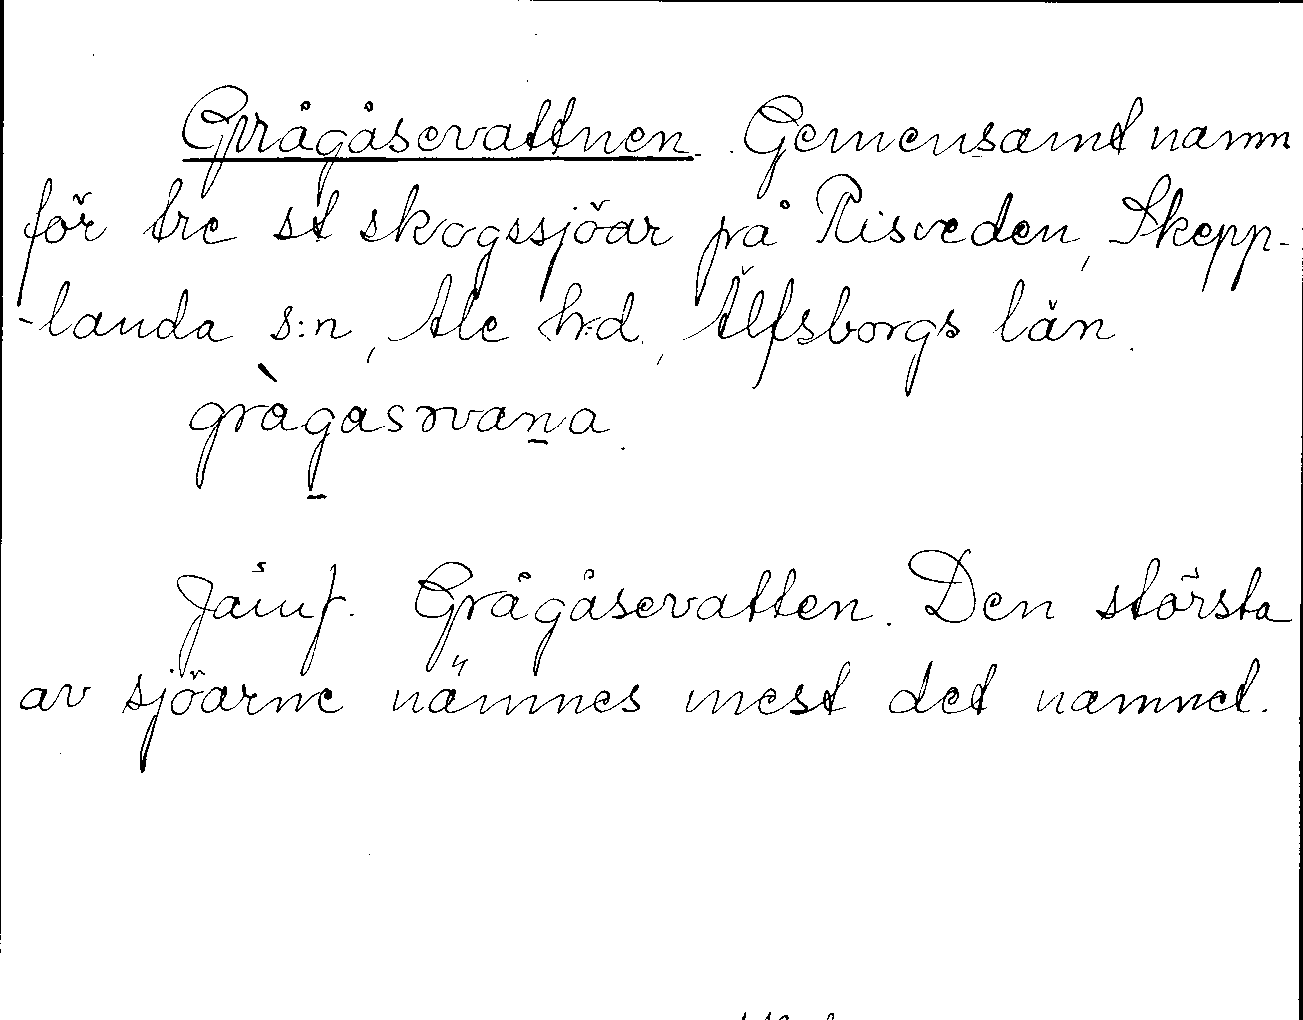 Grågåsevattnen. Gemensamt namn
för tre st skogssjöar på Risveden, Skepp-
-landa s:n, Ale h:d, Älfsborgs län.
Jämf. Grågåsevatten. Den största
av sjöarne nämnes mest det namnet.